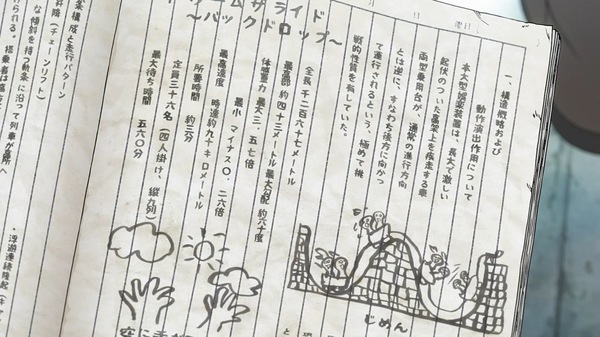 月 日 曜日
一、構造概略および
動作演出作用について
本大型娯楽装置は、長大で激しい
起伏のついた高架上を疾走する車
両型乗用台が、通常の進行方向
とは逆に、すなわち後方に向かっ
て運行されるという、極めて挑
戦的性質を有していた。
全長 千二百六十七メートル
最高部 約四十三メートル 最大勾配 約六十度
体感重力 最大三.五七倍
最小 マイナス〇.二六倍
最高速度 時速約九十キロメートル
所要時間 約三分
定員三十六名(四人掛け、縦九列)
最大待ち時間 五六〇分
じめん
空に
条構成と走行パターン
昇降(チェーンリフト)
な傾斜を持つ軌条に沿って列車が高所へ
・浮遊連続隆起(キャ